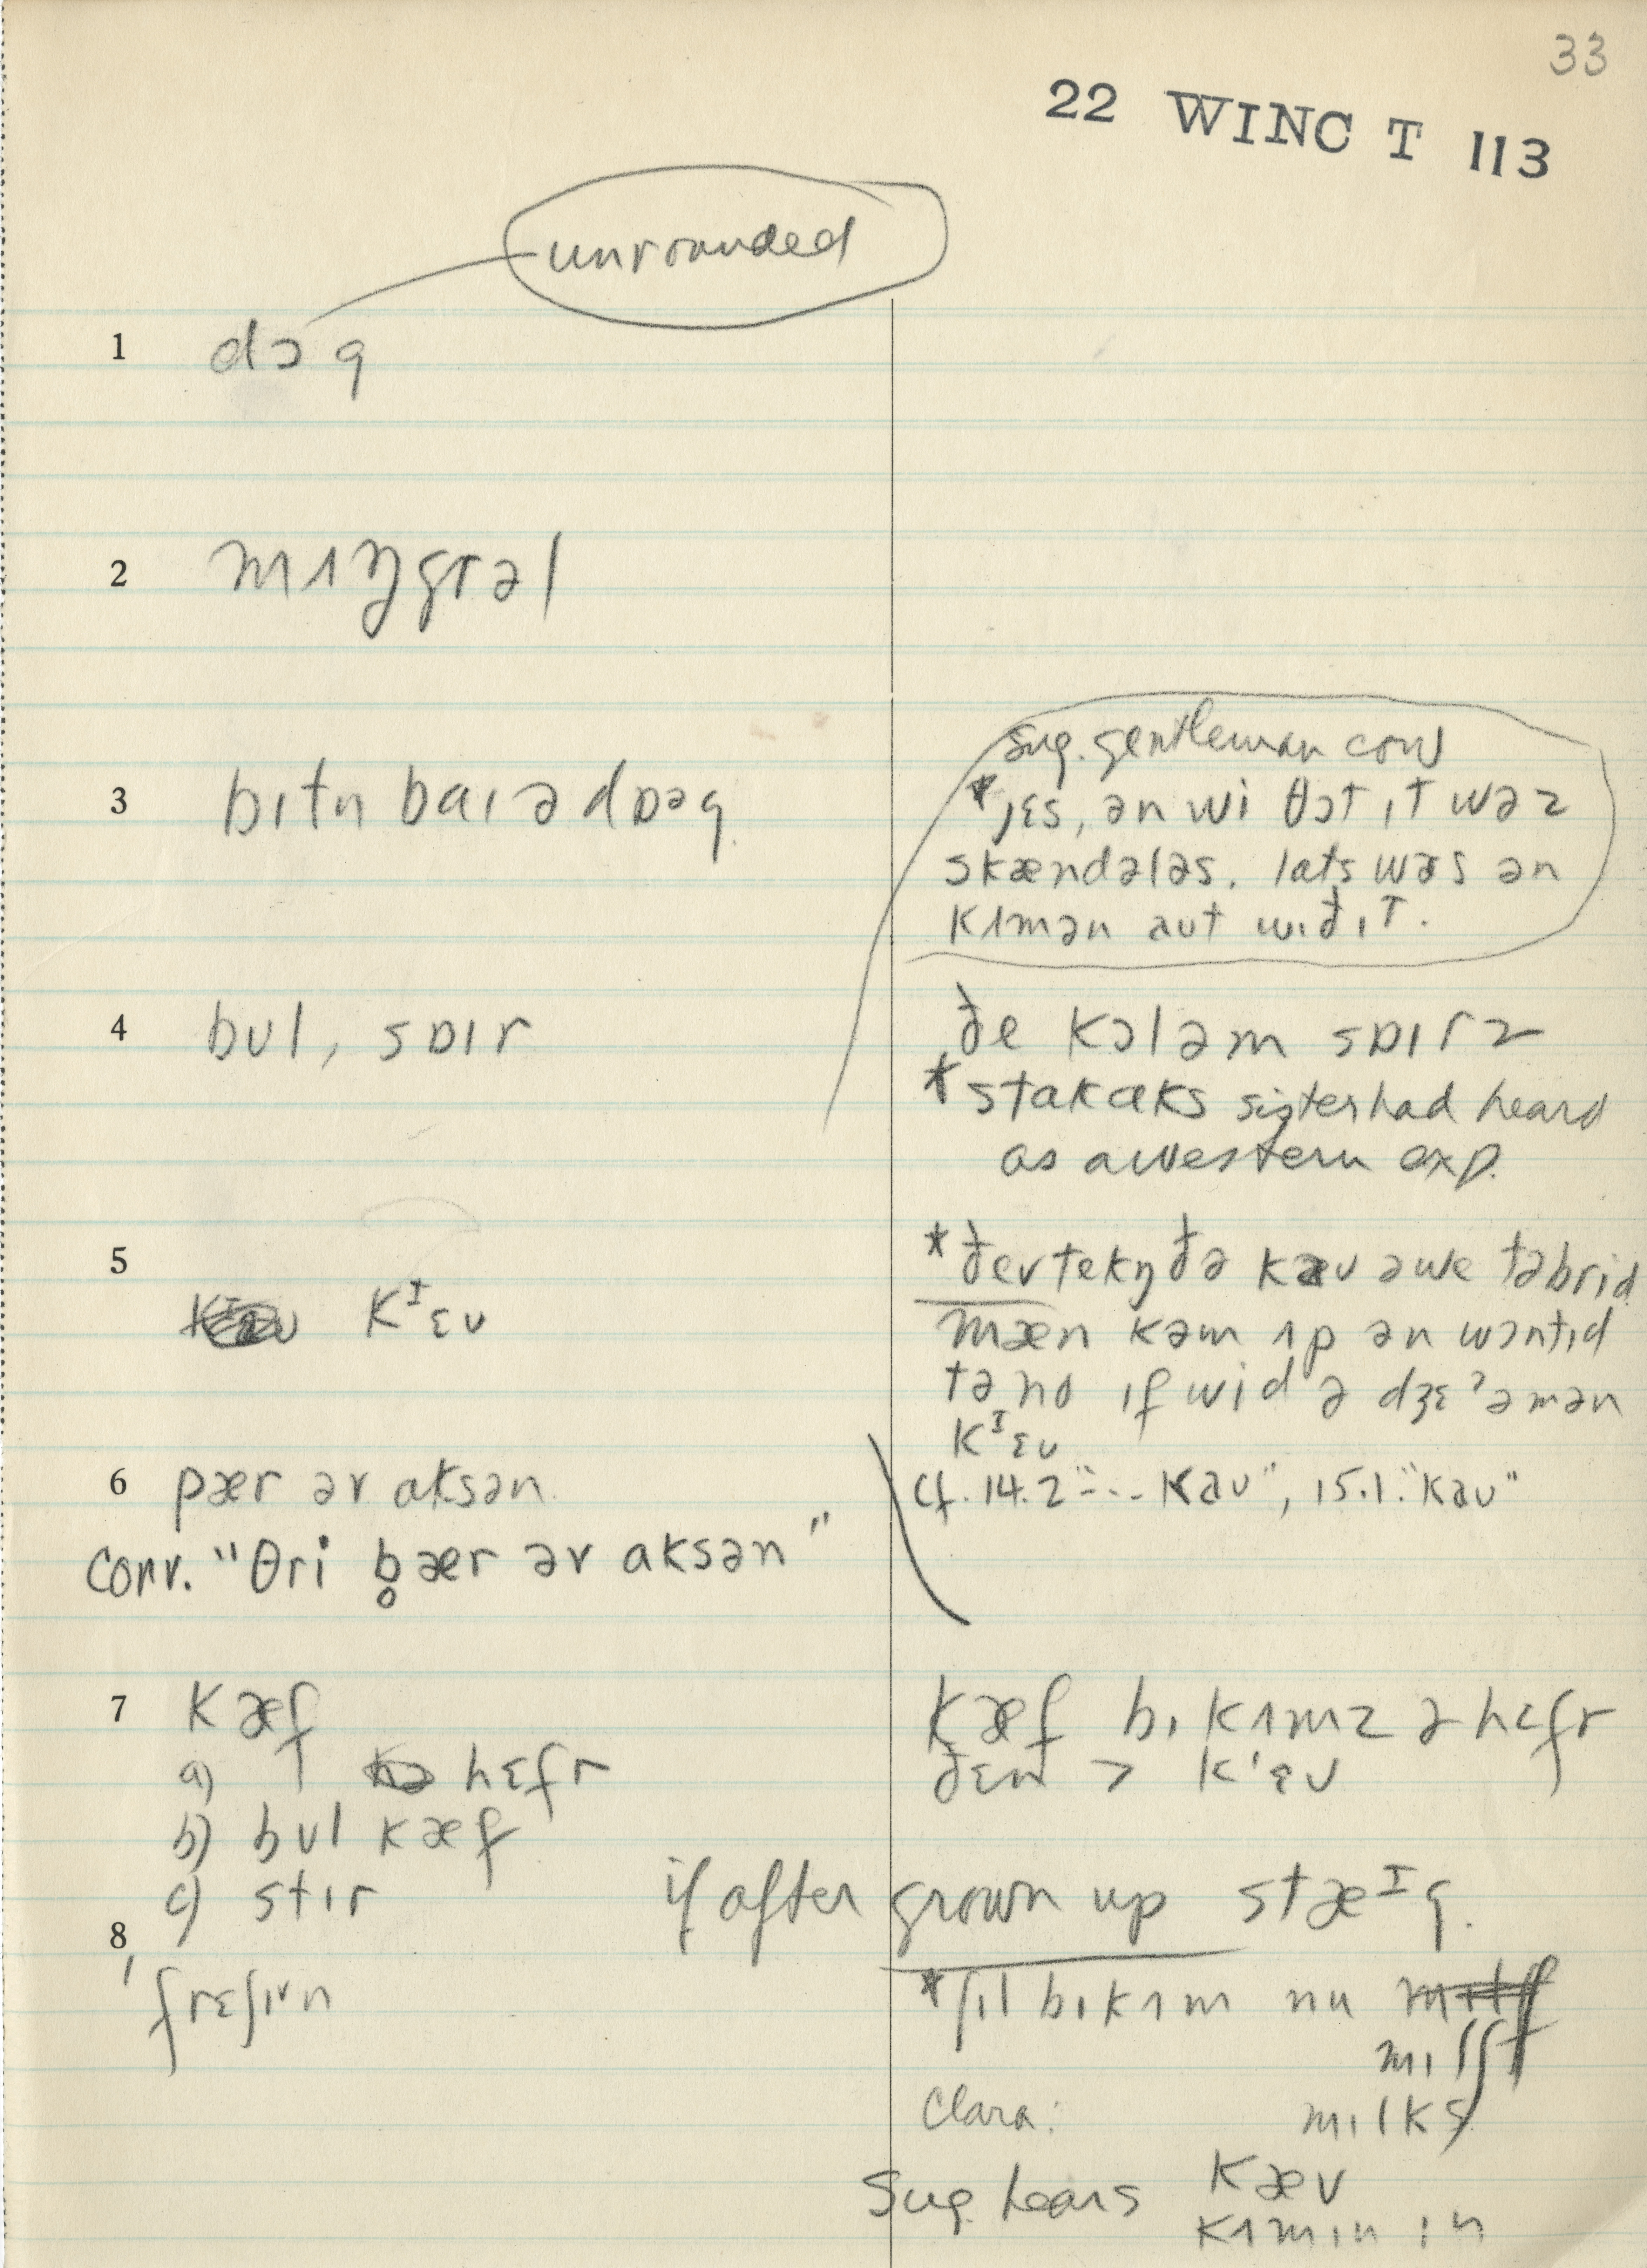 33
22 WINC T 113
unrounded
1 dɔg
2 mʌŋgrəl
3 bɪtn baɪ ə dɒəg
sug. gentleman cow
*jɛs, ən wi θɔt ɪt wəz
skændələs. lats wəs ən
kʌmən aut wɪð ɪt.
4 bʊl, sɒɪr
ðe kɔl əm sɒɪrz
*stakɑks sister had heard
as a western exp.
5 kᴵɛʊ
*ðer tekŋ ðə kæʊ əwe tə brid
mæn kəm ʌp ən wɔntɪd
tə no ɪf wid ə dʒɛʔəmən
kᴵɛʊ
cf. 14.2 "... kaʊ", 15.1. "kaʊ"
6 pær əv aksən
conv. "θri b̥ær əv aksən"
7 kæf
a) hɛfr
b) bʊl kæf
c) stɪr
kæf bɪkʌmz ə hɛfr
ðɛn > kᴵɛʊ
if after grown up stæᴵg.
8 frɛʃɪn
*ʃɪl bɪkʌm nu
mɪlʃt
Clara: mɪlks
Sug. hears kæʊ
kʌmɪn ɪn